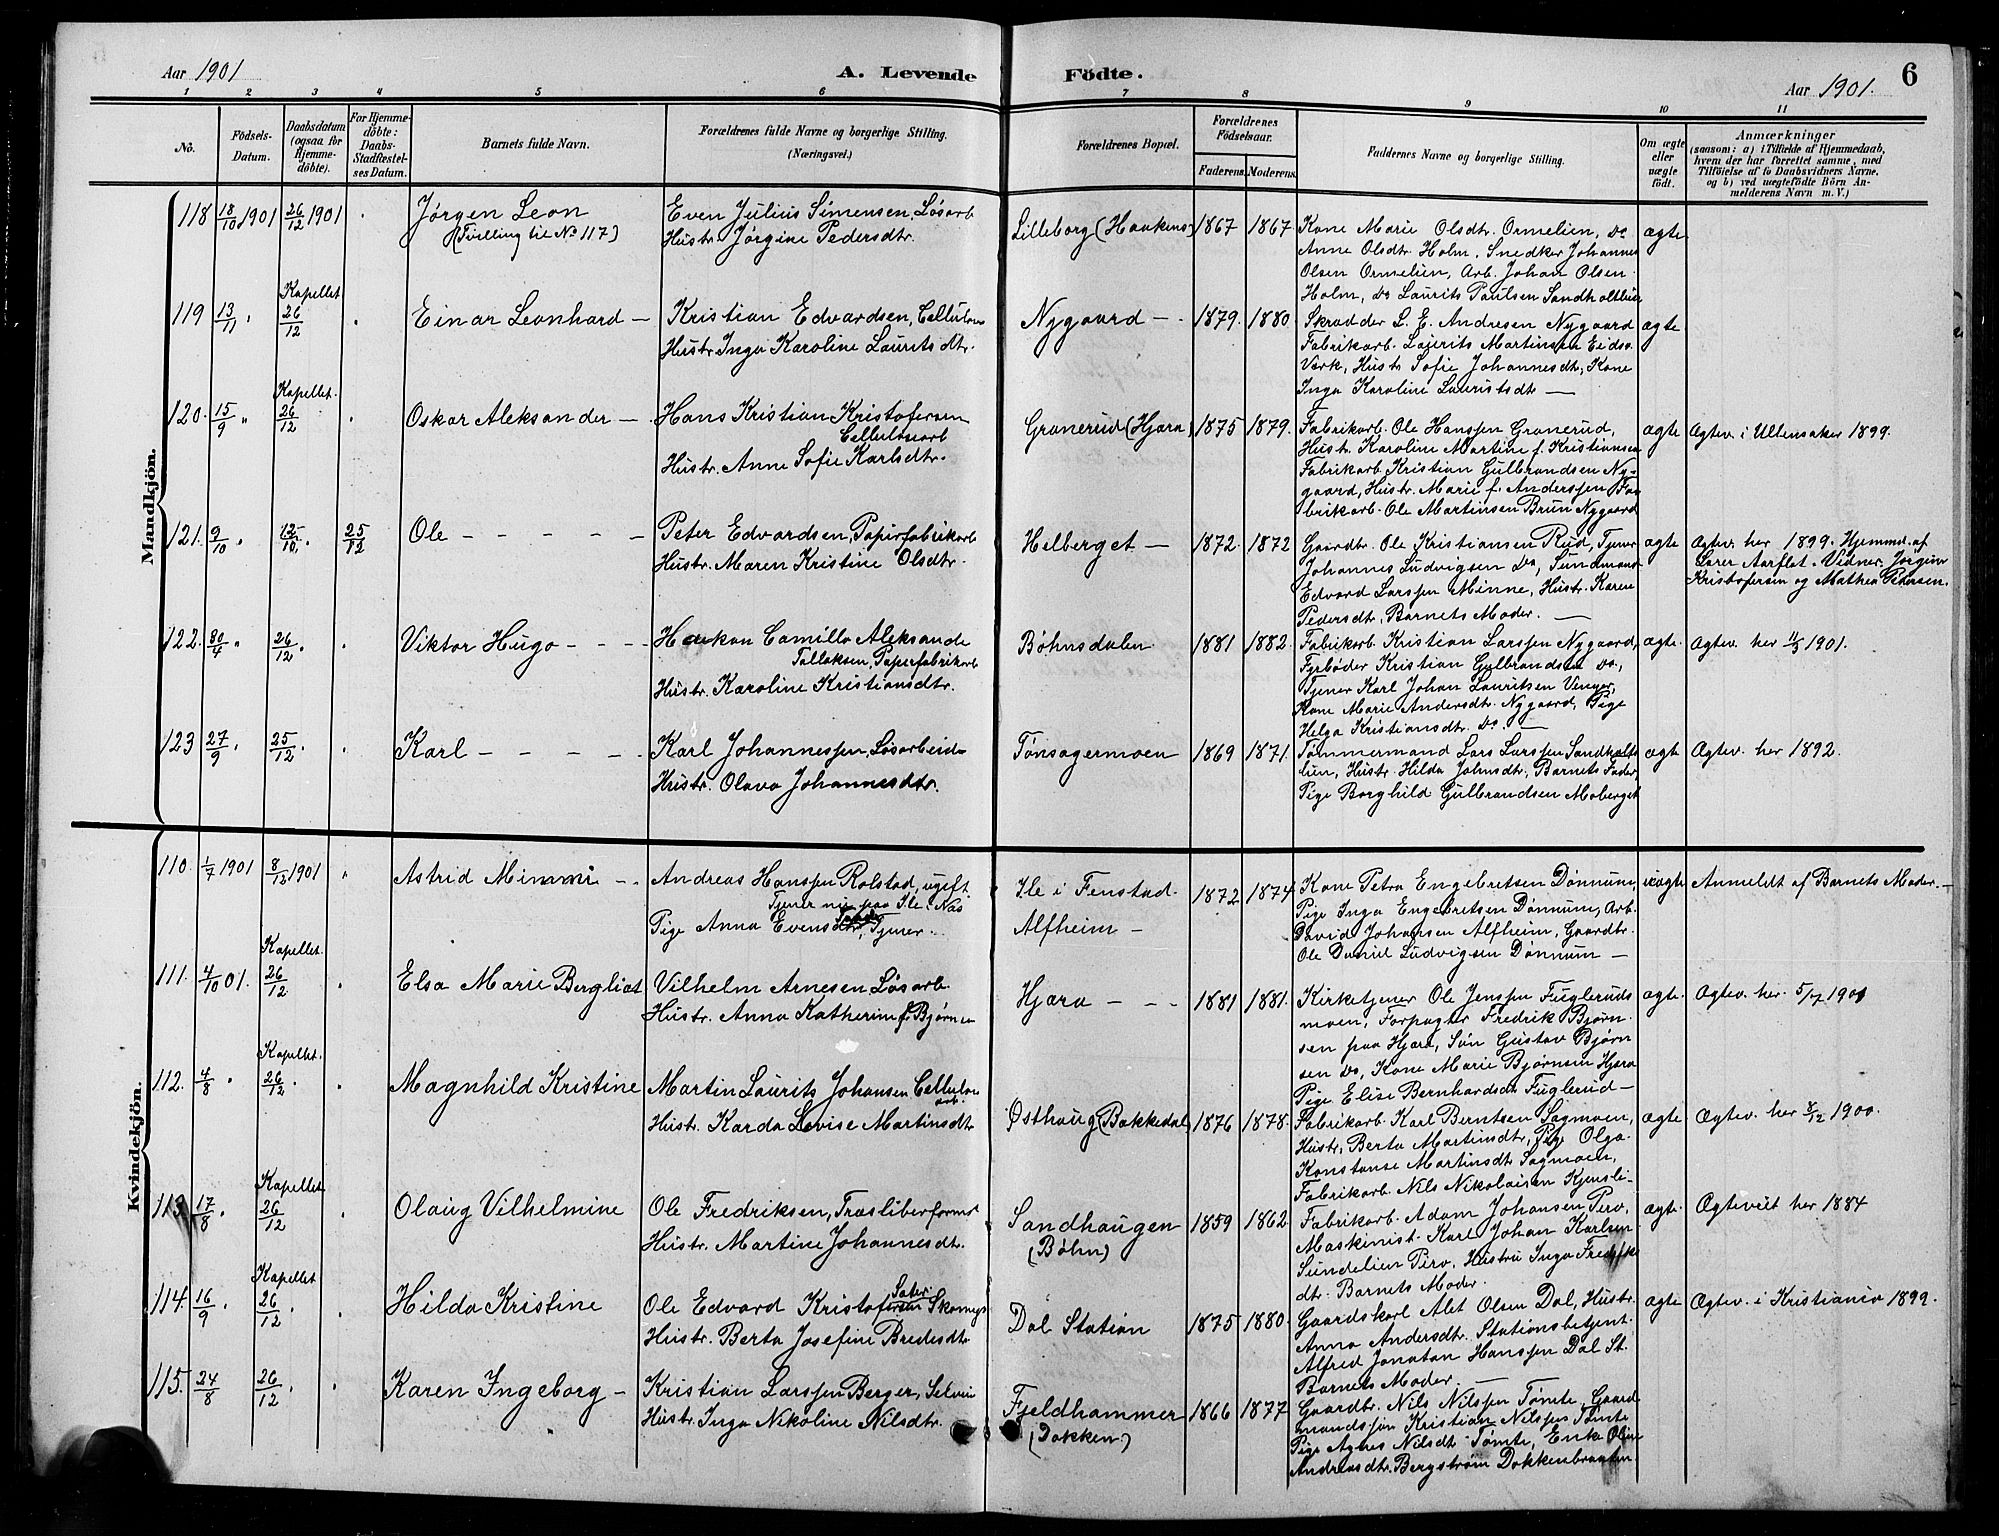 Aar 1901
A. Levende Födte.
Aar 1901.
6
1 2 3 4 5 6 7 8 9 10 11
No.
Födsels-Datum.
Daabsdatum (ogsaa for Hjemme-döbte).
For Hjemme-döbte: Daabs-Stadfæstel-ses Datum.
Barnets fulde Navn.
Forældrenes fulde Navne og borgerlige Stilling.
(Næringsvei.)
Forældrenes Bopæl.
Forældrenes Födselsaar.
Faderens. Moderens.
Faddernes Navne og borgerlige Stilling.
Om ægte eller uægte födt.
Anmærkninger
(saasom: a) i Tilfælde af Hjemmedaab,
hvem der har forrettet samme, med
Tilföielse af to Daabsvidners Navne,
og b) ved uægtefödte Börn An-
melderens Navn m. V.)
Mandkjön.
118 18/10 1901 26/12 1901 Jørgen Leon
(Tvilling til No 117)
Even Julius Simensen, Løsarb
Hustr. Jørgine Pedersdtr.
Lilleborg (Haakens) 1867 1867
Kone Marie Olsdtr. Ormelien, do
Anne Olsdtr Holm, Snedker Johannes
Olsen Ormelien, Arb. Johan Olsen
Holm, do Laurits Paulsen
ægte
119 13/11 Kapellet 26/12 Einar Leonhard
Kristian Edvardsen, Cellulose
Hustr. Inga Karoline Lauritsdtr.
Nygaard 1879. 1880
Skrædder L. E. Andresen Nygaard
Fabrikarb. Laurits Martinsen Eidsv.
Værk, Hustr. Sofie Johannesdtr, Kone
Inga Karoline Lauristsdtr
ægte
120. 15/9 " Kapellet. 26/12 Oskar Aleksander
Hans Kristian Kristofersen
Cellulosearb
Hustr. Anne Sofie Karlsdtr.
Granerud (Hjera) 1875 1879.
Fabrikarb. Ole Hanssen Granerud,
Hustr. Karoline Martine f. Kristiansen
Fabrikarb. Kristian Gulbrandsen Ny-
gaard, Hustr. Marie f. Anderssen Fa-
brikarb. Ole Martinsen Brun Nygaard
ægte Ægtev. i Ullensaker 1899.
121. 9/10 " 12/10 25/12 Ole
Peter Edvardsen, Papirfabrikarb
Hustr. Maren Kristine Olsdtr.
Helberget 1872. 1872
Gaardbr. Ole Kristiansen Rud, Tjener
Johannes Ludvigsen do, Sundmand
Edvard Larssen Minne, Hustr. Karen
Pedersdtr, Barnets Moder.
ægte Ægtev. her 1899. Hjemmd. af
Lærer Aarflot. Vidner, Jørgine
Kristofersen og Mathea Petersen.
122. 30/4 " 26/12 Viktor Hugo
Haakon Camillo Aleksande
Tallaksen, Papirfabrikarb
Hustr. Karoline Kristiansdtr.
Bøhnsdalen 1881 1882.
Fabrikarb. Kristian Larssen Nygaard,
Fyrbøder Kristian Gulbrandsen do,
Tjener Karl Johan Lauritsen Venger,
Kone Marie Andersdtr. Nygaard, Pige
Helga Kristiansdtr. do.
ægte. Ægtev. her 11/3 1901.
123 27/9 25/12 Karl
Karl Johannessen, Løsarbeid
Hustr. Olava Johannesdtr.
Tønsagermoen 1869 1871.
Tømmermand Lars Larssen Sandholt-
lien, Hustr. Hilda Johnsdtr, Barnets Fader,
Pige Borghild Gulbrandsen Moberget
ægte Ægtev. her 1892.
Kvindekjön.
110. 1/7 1901 8/12 1901 Astrid Mimmi
Andreas Hanssen Rolstad, ugift
Tjener nu paa Ile i Næs
Pige Anna Evensdtr, Tjener.
Ile i Fenstad. 1872 1874
Alfheim
Kone Petra Engebretsen Dønnum,
Pige Inga Engebretsen Dønnum, Arb.
David Johansen Alfheim, Gaardbr.
Ole Daniel Ludvigsen Dønnum
uægte Anmeldt af Barnets Moder.
111. 4/10 01. Kapellet. 26/12 Elsa Marie Bergliot
Vilhelm Arnesen Løsarb
Hustr. Anna Katherine f. Bjørnsen
Hjera 1881 1881.
Kirketjener Ole Jenssen Fuglerud-
moen, Forpagter Fredrik Bjørn-
sen paa Hjera, Søn Gustav Bjørn
sen do, Kone Marie Bjørnsen Hjera
Pige Elise Bernhardsdtr Fuglerud
ægte. Ægtev. her 5/7 1901
112. 4/8 " Kapellet. 26/12 Magnhild Kristine
Martin Laurits Johansen Cellulose
arb.
Hustr. Karda Lovise Martinsdtr
Østhaug (Bakkedal) 1876 1878.
Fabrikarb. Karl Berntsen Sagmoen,
Hustr, Berta Martinsdtr, Pige Olga
Konstanse Martinsdtr Sagmoen,
Fabrikarb. Nils Nikolaisen Kjensli
ægte Ægtev. her 8/12 1900.
113. 17/8 Kapellet. 26/12 Olaug Vilhelmine
Ole Fredriksen, Træsliberformd
Hustr. Martine Johannesdtr.
Sandhaugen 1859 1862
(Bøhn)
Fabrikarb. Adam Johansen Pero,
Maskinist. Karl Johan Karlsen
Sundelien Piro, Hustru Inga Fredriks
dtr. Barnets Moder.
ægte. Ægteviet her 1884
114. 16/9 Kapellet 26/12 Hilda Kristine
Ole Edvard Kristofersen Sæter Skomag.
Hustr. Berta Josefine Bredesdtr
Dal Station 1875 1880.
Gaardskarl Alet Olsen Dal, Hustr.
Anna Andersdtr. Stationsbetjent
Alfred Jonatan Hanssen Dal St.
Barnets Moder
ægte Ægtev. i Kristiania 1899.
115. 24/8 26/12 Karen Ingeborg
Kristian Larssen Berger, Selveier
Hustr. Inga Nikoline Nilsdtr.
Fjeldhammer 1866 1877
(Dokken)
Gaardbr. Nils Nilssen Tømte, Gaard
mandssøn Kristian Nilssen Tømte
Pige Agnes Nilsdtr Tømte, Enke Oline
Andreasdtr. Bergstrøm Dokkenbraaten